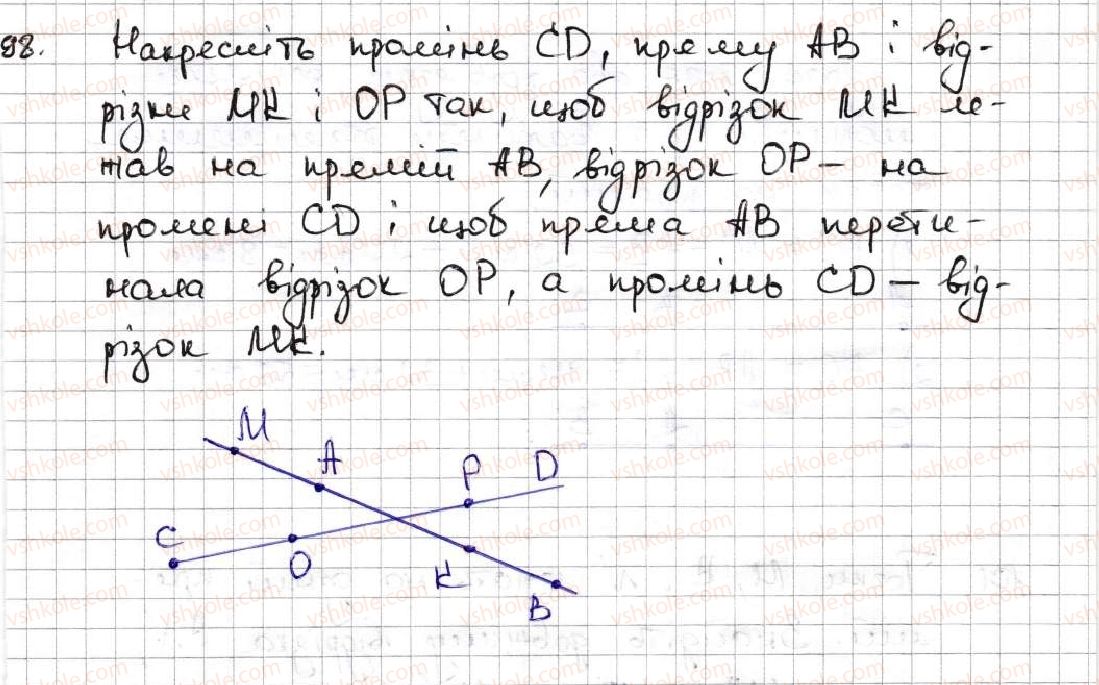 98. Накресліть промінь CD, пряму AB і від-
різки MK і OP так, щоб відрізок MK ле-
жав на прямій AB, відрізок OP – на
промені CD і щоб пряма AB перети-
нала відрізок OP, а промінь CD – від-
різок MK.
M
A
P
D
C
O
K
B
vshkole.com